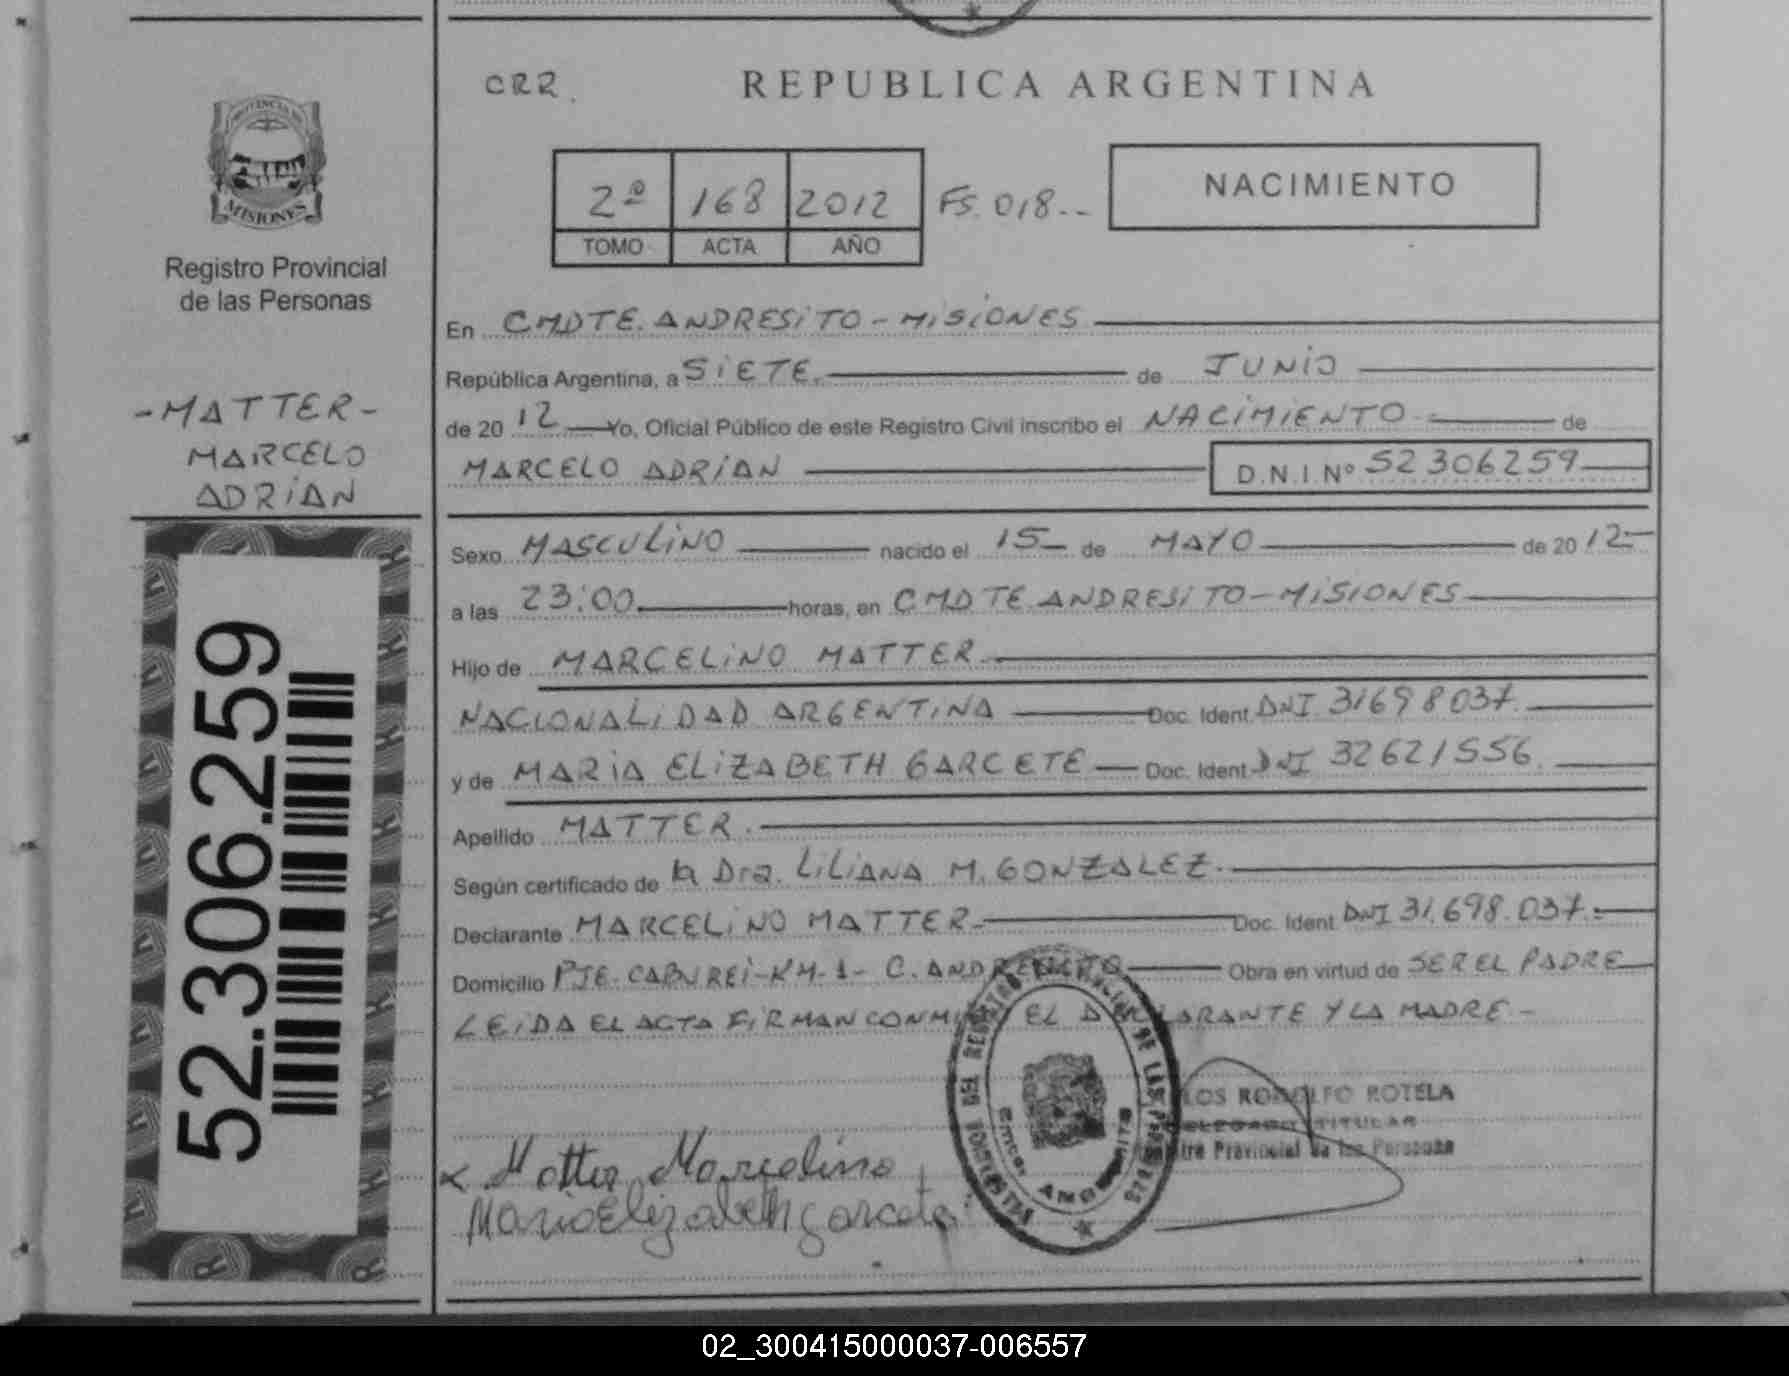 CRR.
REPUBLICA ARGENTINA
PROVINCIA DE
MISIONES
Registro Provincial
de las Personas
2º 168 2012 FS. 018--
TOMO ACTA AÑO
NACIMIENTO
-MATTER-
MARCELO
ADRIAN
52.306.259
En CMDTE. ANDRESITO - MISIONES
República Argentina, a SIETE. de JUNIO
de 2012 Yo, Oficial Público de este Registro Civil inscribo el NACIMIENTO de
MARCELO ADRIAN D.N.I. Nº 52306259
Sexo MASCULINO nacido el 15 de MAYO de 2012
a las 23:00 horas, en CMDTE ANDRESITO - MISIONES
Hijo de MARCELINO MATTER
NACIONALIDAD ARGENTINA Doc. Ident DNI 31698037.
y de MARIA ELIZABETH GARCETE Doc. Ident DNI 32621556.
Apellido MATTER.
Según certificado de la Dra. LILIANA M. GONZALEZ.
Declarante MARCELINO MATTER Doc. Ident. DNI 31.698.037.
Domicilio PJE. CABUREI-KM-1- C. ANDRESITO Obra en virtud de SER EL PADRE
LEIDA EL ACTA FIRMAN CONMIGO EL DECLARANTE Y LA MADRE -
LOS RODOLFO ROTELA
DELEGADO TITULAR
Provincial de las Personas
Matter Marcelino
Maria Elizabeth garcete
02_300415000037-006557